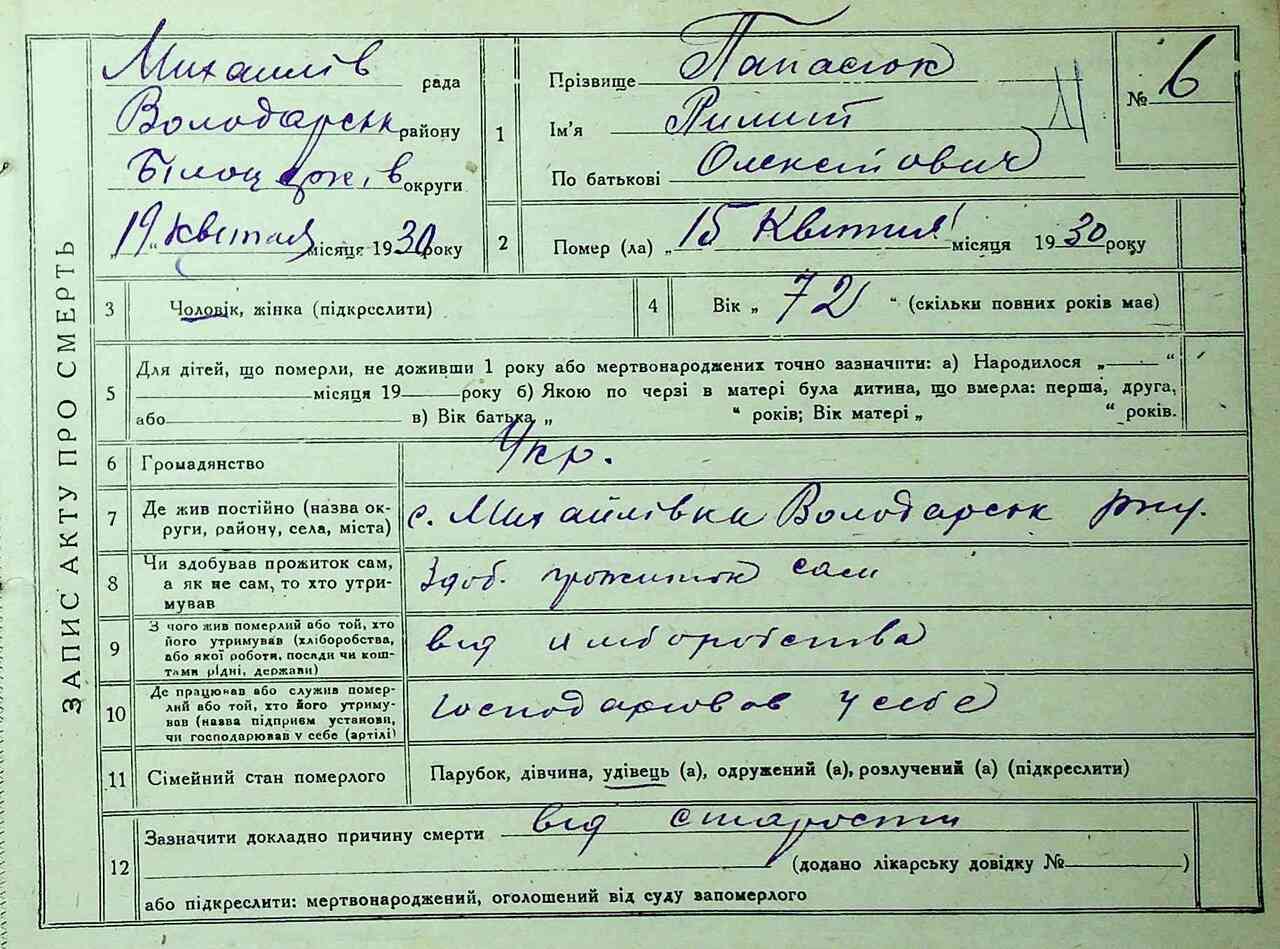 ЗАПИС АКТУ ПРО СМЕРТЬ
Михайлів рада
Володарськ району
Білоцерків округи
„19“ квітня місяця 1930 року
1
Прізвище Папасюк
Ім'я
По батькові Олексійович
№ 6
2
Помер (ла) „15 Квітня місяця 1930 року
3
Чоловік, жінка (підкреслити)
4
Вік „ 72 “ (скільки повних років має)
5
Для дітей, що померли, не доживши 1 року або мертвонароджених точно зазначити: а) Народилося „ “
місяця 19 року б) Якою по черзі в матері була дитина, що вмерла: перша, друга,
або в) Вік батька „ “ років; Вік матері „ “ років.
6
Громадянство
Укр.
7
Де жив постійно (назва ок-
руги, району, села, міста)
с. Михайлівки Володарськ р-ну.
8
Чи здобував прожиток сам,
а як не сам, то хто утри-
мував
Здоб. прожиток сам
9
З чого жив померлий або той, хто
його утримував (хліборобства,
або якої роботи, посади чи кош-
тами рідні, держави)
від хліборобства
10
Де працював або служив помер-
лий або той, хто його утриму-
вав (назва підприєм установи,
чи господарював у себе (артілі)
Господарював у себе
11
Сімейний стан померлого
Парубок, дівчина, удівець (а), одружений (а), розлучений (а) (підкреслити)
12
Зазначити докладно причину смерти від старости
(додано лікарську довідку № )
або підкреслити: мертвонароджений, оголошений від суду запомерлого